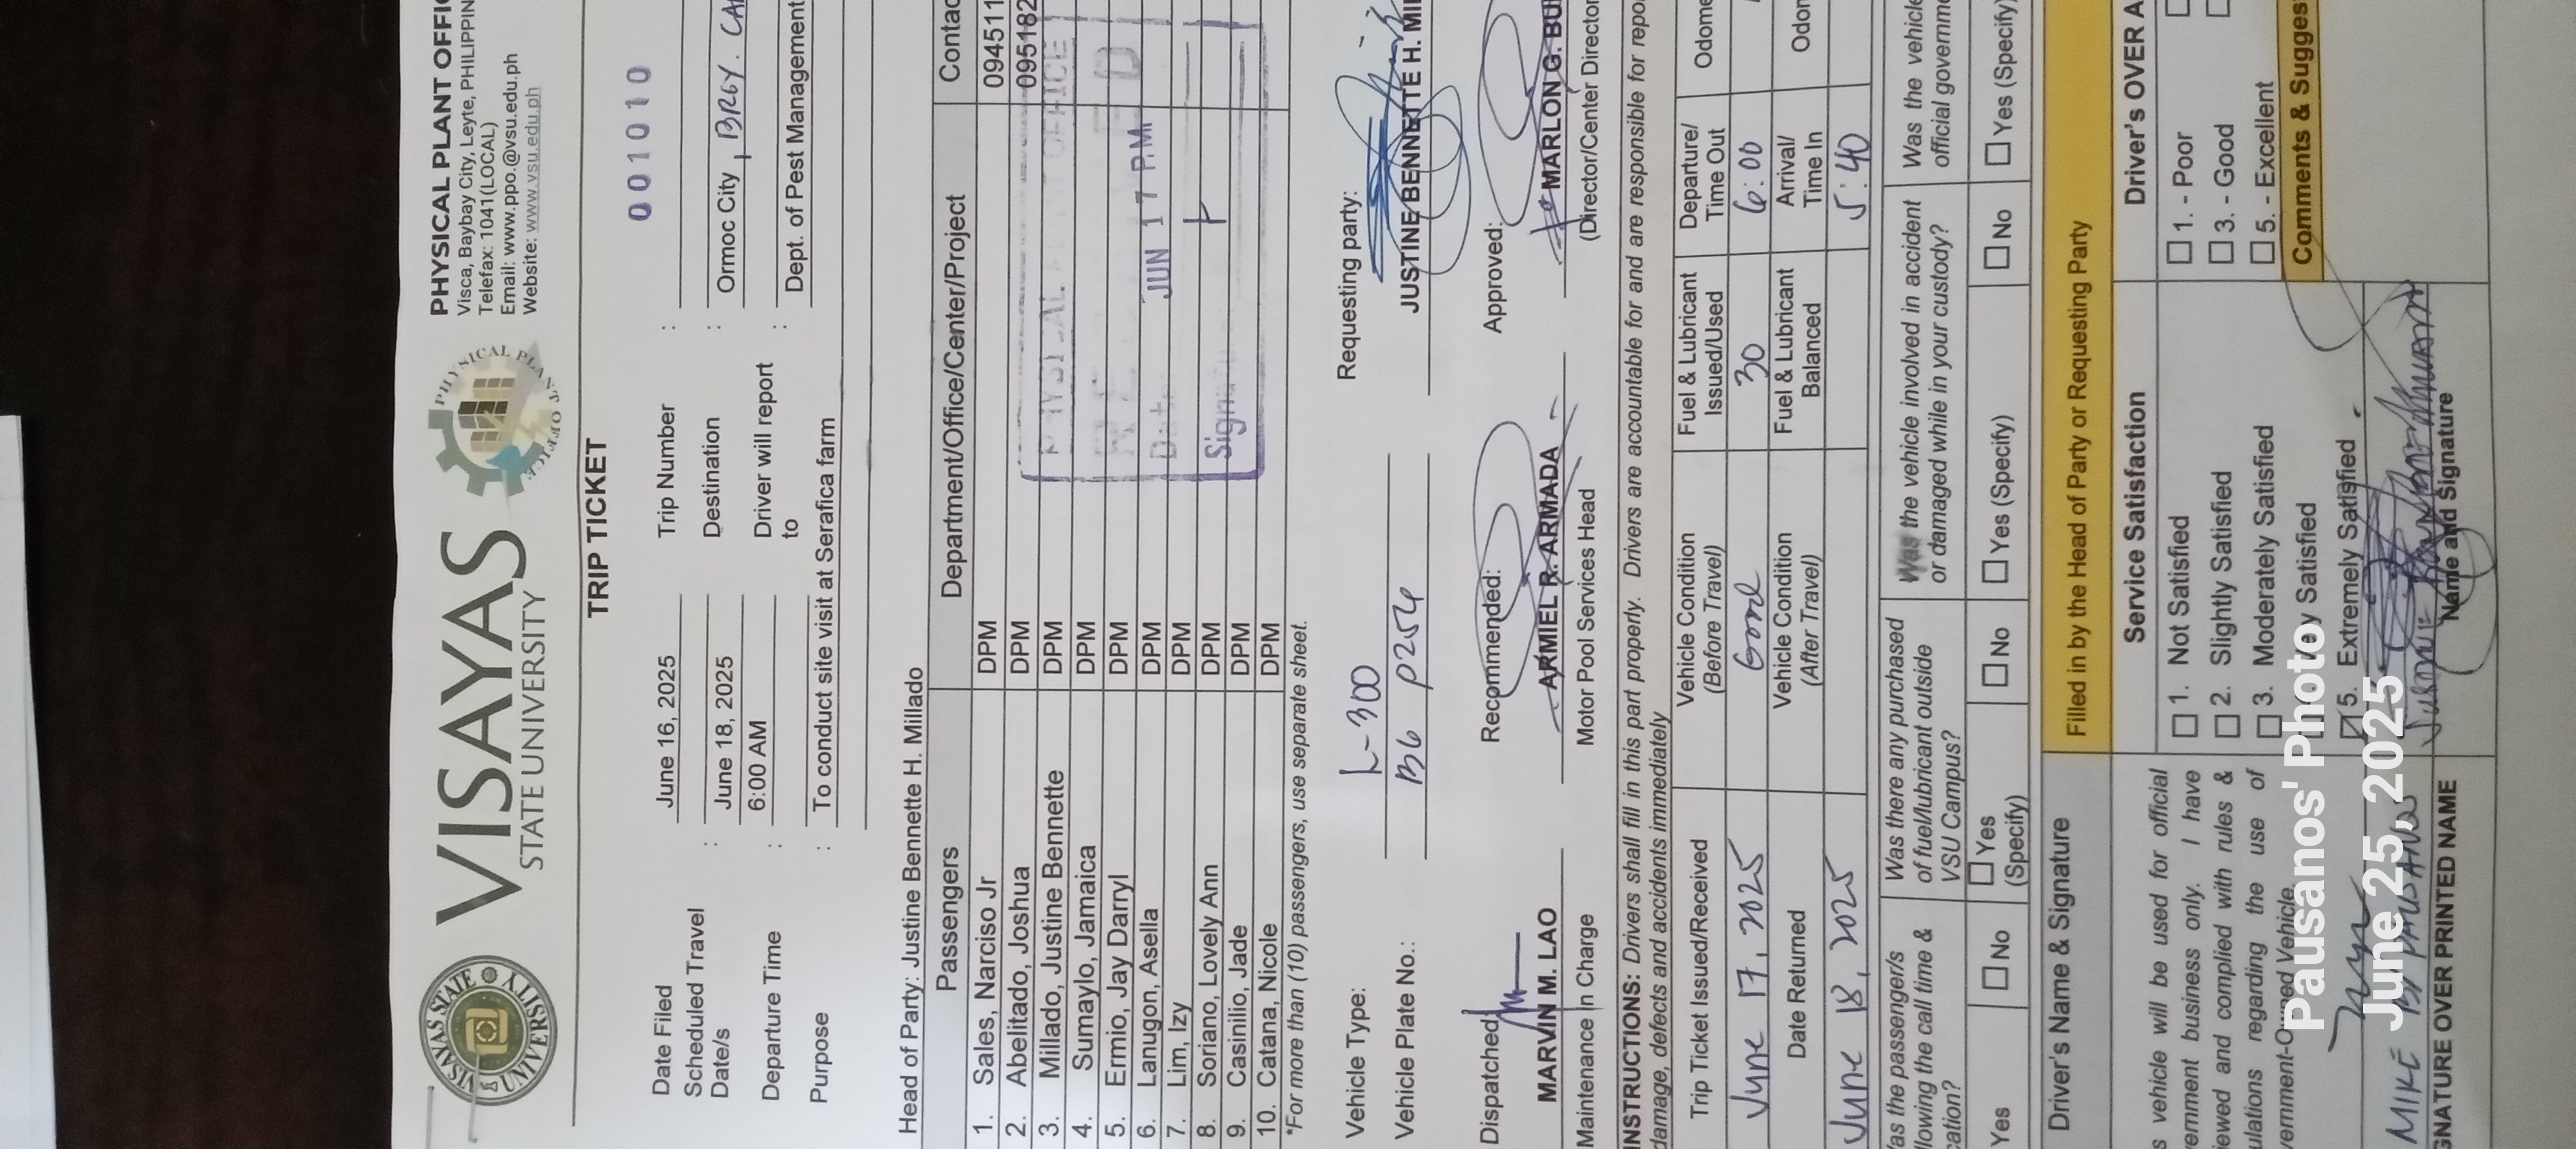 VISAYAS
STATE UNIVERSITY
PHYSICAL PLANT OFFIC
Visca, Baybay City, Leyte, PHILIPPIN
Telefax: 1041(LOCAL)
Email: www.ppo.@vsu.edu.ph
Website: www.vsu.edu.ph
TRIP TICKET
001010
Date Filed June 16, 2025 Trip Number :
Scheduled Travel Date/s : June 18, 2025 Destination : Ormoc City, BRGY. CA
Departure Time : 6:00 AM Driver will report to : Dept. of Pest Management
Purpose : To conduct site visit at Serafica farm
Head of Party: Justine Bennette H. Millado
Passengers Department/Office/Center/Project Contac
1. Sales, Narciso Jr DPM 094511
2. Abelitado, Joshua DPM 095182
3. Millado, Justine Bennette DPM
4. Sumaylo, Jamaica DPM
5. Ermio, Jay Darryl DPM
6. Lanugon, Asella DPM
7. Lim, Izy DPM
8. Soriano, Lovely Ann DPM
9. Casinilio, Jade DPM
10. Catana, Nicole DPM
PHYSICAL PLANT OFFICE
Date JUN 17 P.M
Signature
*For more than (10) passengers, use separate sheet.
Vehicle Type: L-300
Vehicle Plate No.: B6 P254
Requesting party:
JUSTINE BENNETTE H. MI
Dispatched Recommended: Approved:
MARVIN M. LAO ARMIEL R. ARMADA MARLON G. BU
Maintenance In Charge Motor Pool Services Head (Director/Center Director
INSTRUCTIONS: Drivers shall fill in this part properly. Drivers are accountable for and are responsible for repo
damage, defects and accidents immediately
Trip Ticket Issued/Received Vehicle Condition (Before Travel) Fuel & Lubricant Issued/Used Departure/ Time Out Odome
June 17, 2025 Good 30 6:00
Date Returned Vehicle Condition (After Travel) Fuel & Lubricant Balanced Arrival/ Time In Odon
June 18, 2025 5:40
as the passenger/s llowing the call time & cation? Was there any purchased of fuel/lubricant outside VSU Campus? Was the vehicle involved in accident or damaged while in your custody? Was the vehicle official governme
Yes No Yes (Specify) No Yes (Specify) No Yes (Specify)
Driver's Name & Signature Filled in by the Head of Party or Requesting Party
s vehicle will be used for official
ernment business only. I have
iewed and complied with rules &
ulations regarding the use of
vernment-Owned Vehicle.
MIKE B. PAUSANOS
GNATURE OVER PRINTED NAME
Service Satisfaction
1. Not Satisfied
2. Slightly Satisfied
3. Moderately Satisfied
Satisfied
5. Extremely Satisfied
Name and Signature
Driver's OVER A
1. - Poor
3. - Good
5. - Excellent
Comments & Sugges
Pausanos' Photo
June 25, 2025